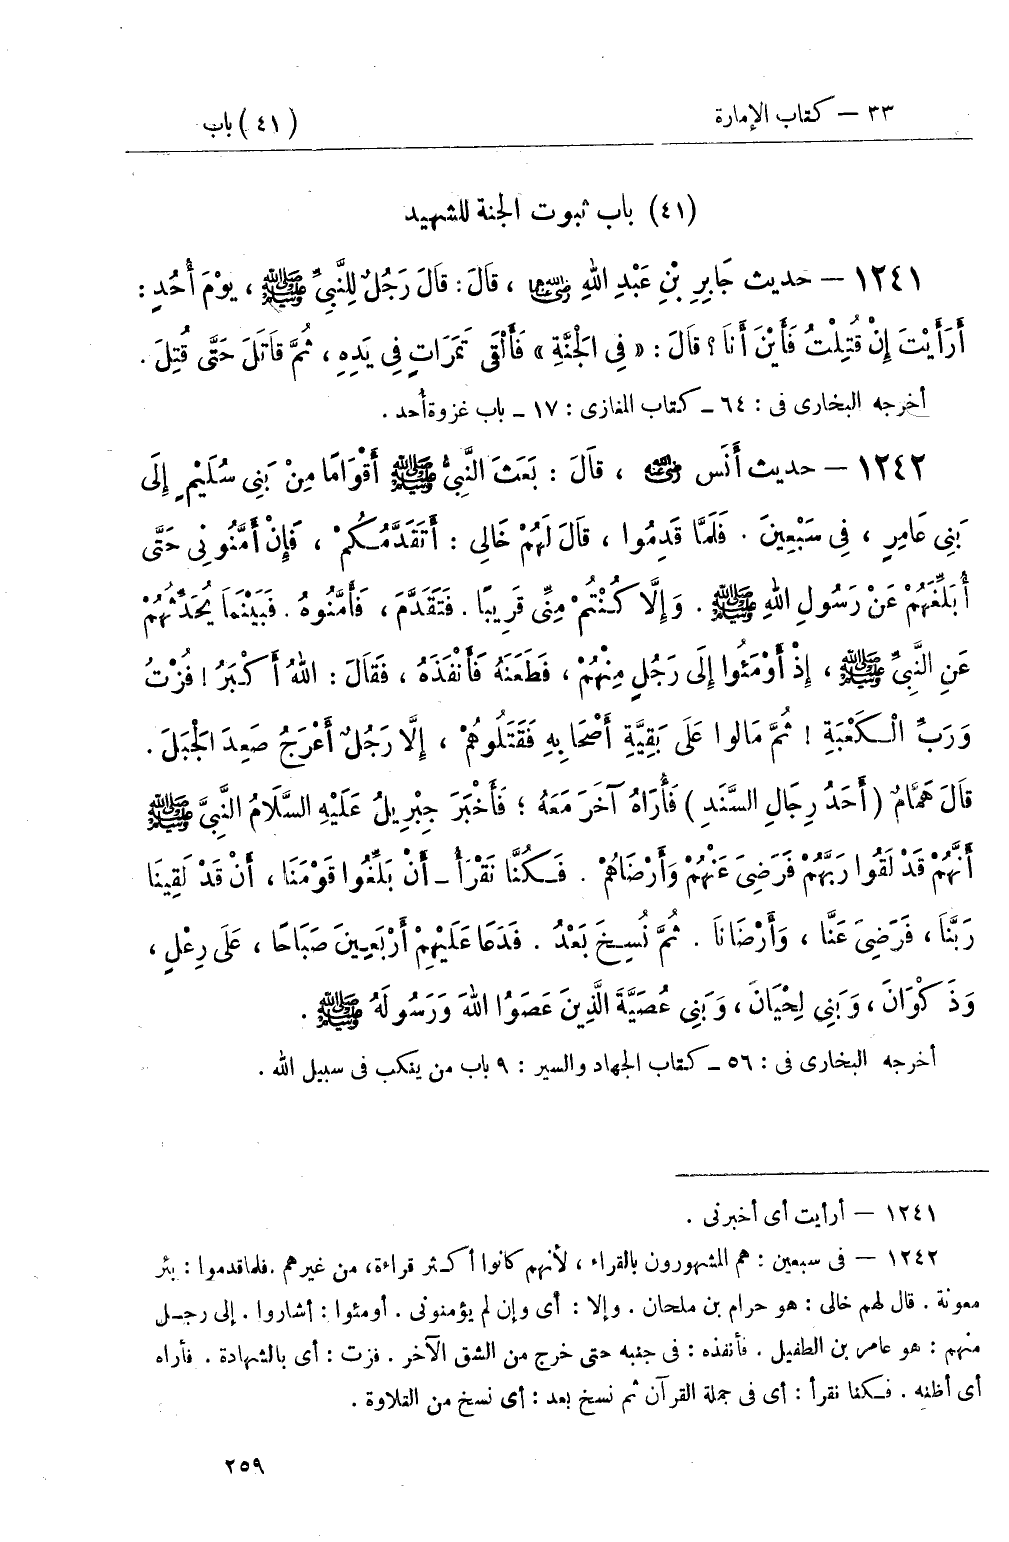 ٣٣ — كتاب الإمارة
(٤١) باب
(٤١) باب ثبوت الجنة للشهيد
١٢٤١ — حديث جَابِرِ بْنِ عَبْدِ اللهِ رضي الله عنهما ، قَالَ : قَالَ رَجُلٌ لِلنَّبِيِّ ﷺ ، يَوْمَ أُحُدٍ :
أَرَأَيْتَ إِنْ قُتِلْتُ فَأَيْنَ أَنَا ؟ قَالَ : « فِي الْجَنَّةِ » فَأَلْقَى تَمَرَاتٍ فِي يَدِهِ ، ثُمَّ قَاتَلَ حَتَّى قُتِلَ .
أخرجه البخارى فى : ٦٤ ـ كتاب المغازى : ١٧ ـ باب غزوة أحد .
١٢٤٢ — حديث أَنَسٍ رضي الله عنه ، قَالَ : بَعَثَ النَّبِيُّ ﷺ أَقْوَامًا مِنْ بَنِي سُلَيْمٍ إِلَى
بَنِي عَامِرٍ ، فِي سَبْعِينَ . فَلَمَّا قَدِمُوا ، قَالَ لَهُمْ خَالِي : أَتَقَدَّمُكُمْ ، فَإِنْ أَمَّنُونِي حَتَّى
أُبَلِّغَهُمْ عَنْ رَسُولِ اللهِ ﷺ . وَإِلَّا كُنْتُمْ مِنِّي قَرِيبًا . فَتَقَدَّمَ ، فَأَمَّنُوهُ . فَبَيْنَمَا يُحَدِّثُهُمْ
عَنِ النَّبِيِّ ﷺ ، إِذْ أَوْمَئُوا إِلَى رَجُلٍ مِنْهُمْ ، فَطَعَنَهُ فَأَنْفَذَهُ ، فَقَالَ : اللهُ أَكْبَرُ ! فُزْتُ
وَرَبِّ الْكَعْبَةِ ! ثُمَّ مَالُوا عَلَى بَقِيَّةِ أَصْحَابِهِ فَقَتَلُوهُمْ ، إِلَّا رَجُلٌ أَعْرَجُ صَعِدَ الْجَبَلَ .
قَالَ هَمَّامٌ ( أَحَدُ رِجَالِ السَّنَدِ ) فَأُرَاهُ آخَرَ مَعَهُ ؛ فَأَخْبَرَ جِبْرِيلُ عَلَيْهِ السَّلَامُ النَّبِيَّ ﷺ
أَنَّهُمْ قَدْ لَقُوا رَبَّهُمْ فَرَضِيَ عَنْهُمْ وَأَرْضَاهُمْ . فَكُنَّا نَقْرَأُ ـ أَنْ بَلِّغُوا قَوْمَنَا ، أَنْ قَدْ لَقِينَا
رَبَّنَا ، فَرَضِيَ عَنَّا ، وَأَرْضَانَا . ثُمَّ نُسِخَ بَعْدُ . فَدَعَا عَلَيْهِمْ أَرْبَعِينَ صَبَاحًا ، عَلَى رِعْلٍ ،
وَذَكْوَانَ ، وَبَنِي لِحْيَانَ ، وَبَنِي عُصَيَّةَ الَّذِينَ عَصَوُا اللهَ وَرَسُولَهُ ﷺ .
أخرجه البخارى فى : ٥٦ ـ كتاب الجهاد والسير : ٩ باب من ينكب فى سبيل الله .
١٢٤١ — أرأيت أى أخبرنى .
١٢٤٢ — فى سبعين : هم المشهورون بالقراء ، لأنهم كانوا أكثر قراءة ، من غيرهم . فلما قدموا : بئر
معونة . قال لهم خالى : هو حرام بن ملحان . وإلا : أى وإن لم يؤمنونى . أومئوا : أشاروا . إلى رجل
منهم : هو عامر بن الطفيل . فأنفذه : فى جنبه حتى خرج من الشق الآخر . فزت : أى بالشهادة . فأراه
أى أظنه . فكنا نقرأ : أى فى جملة القرآن ثم نسخ بعد : أى نسخ من التلاوة .
٢٥٩